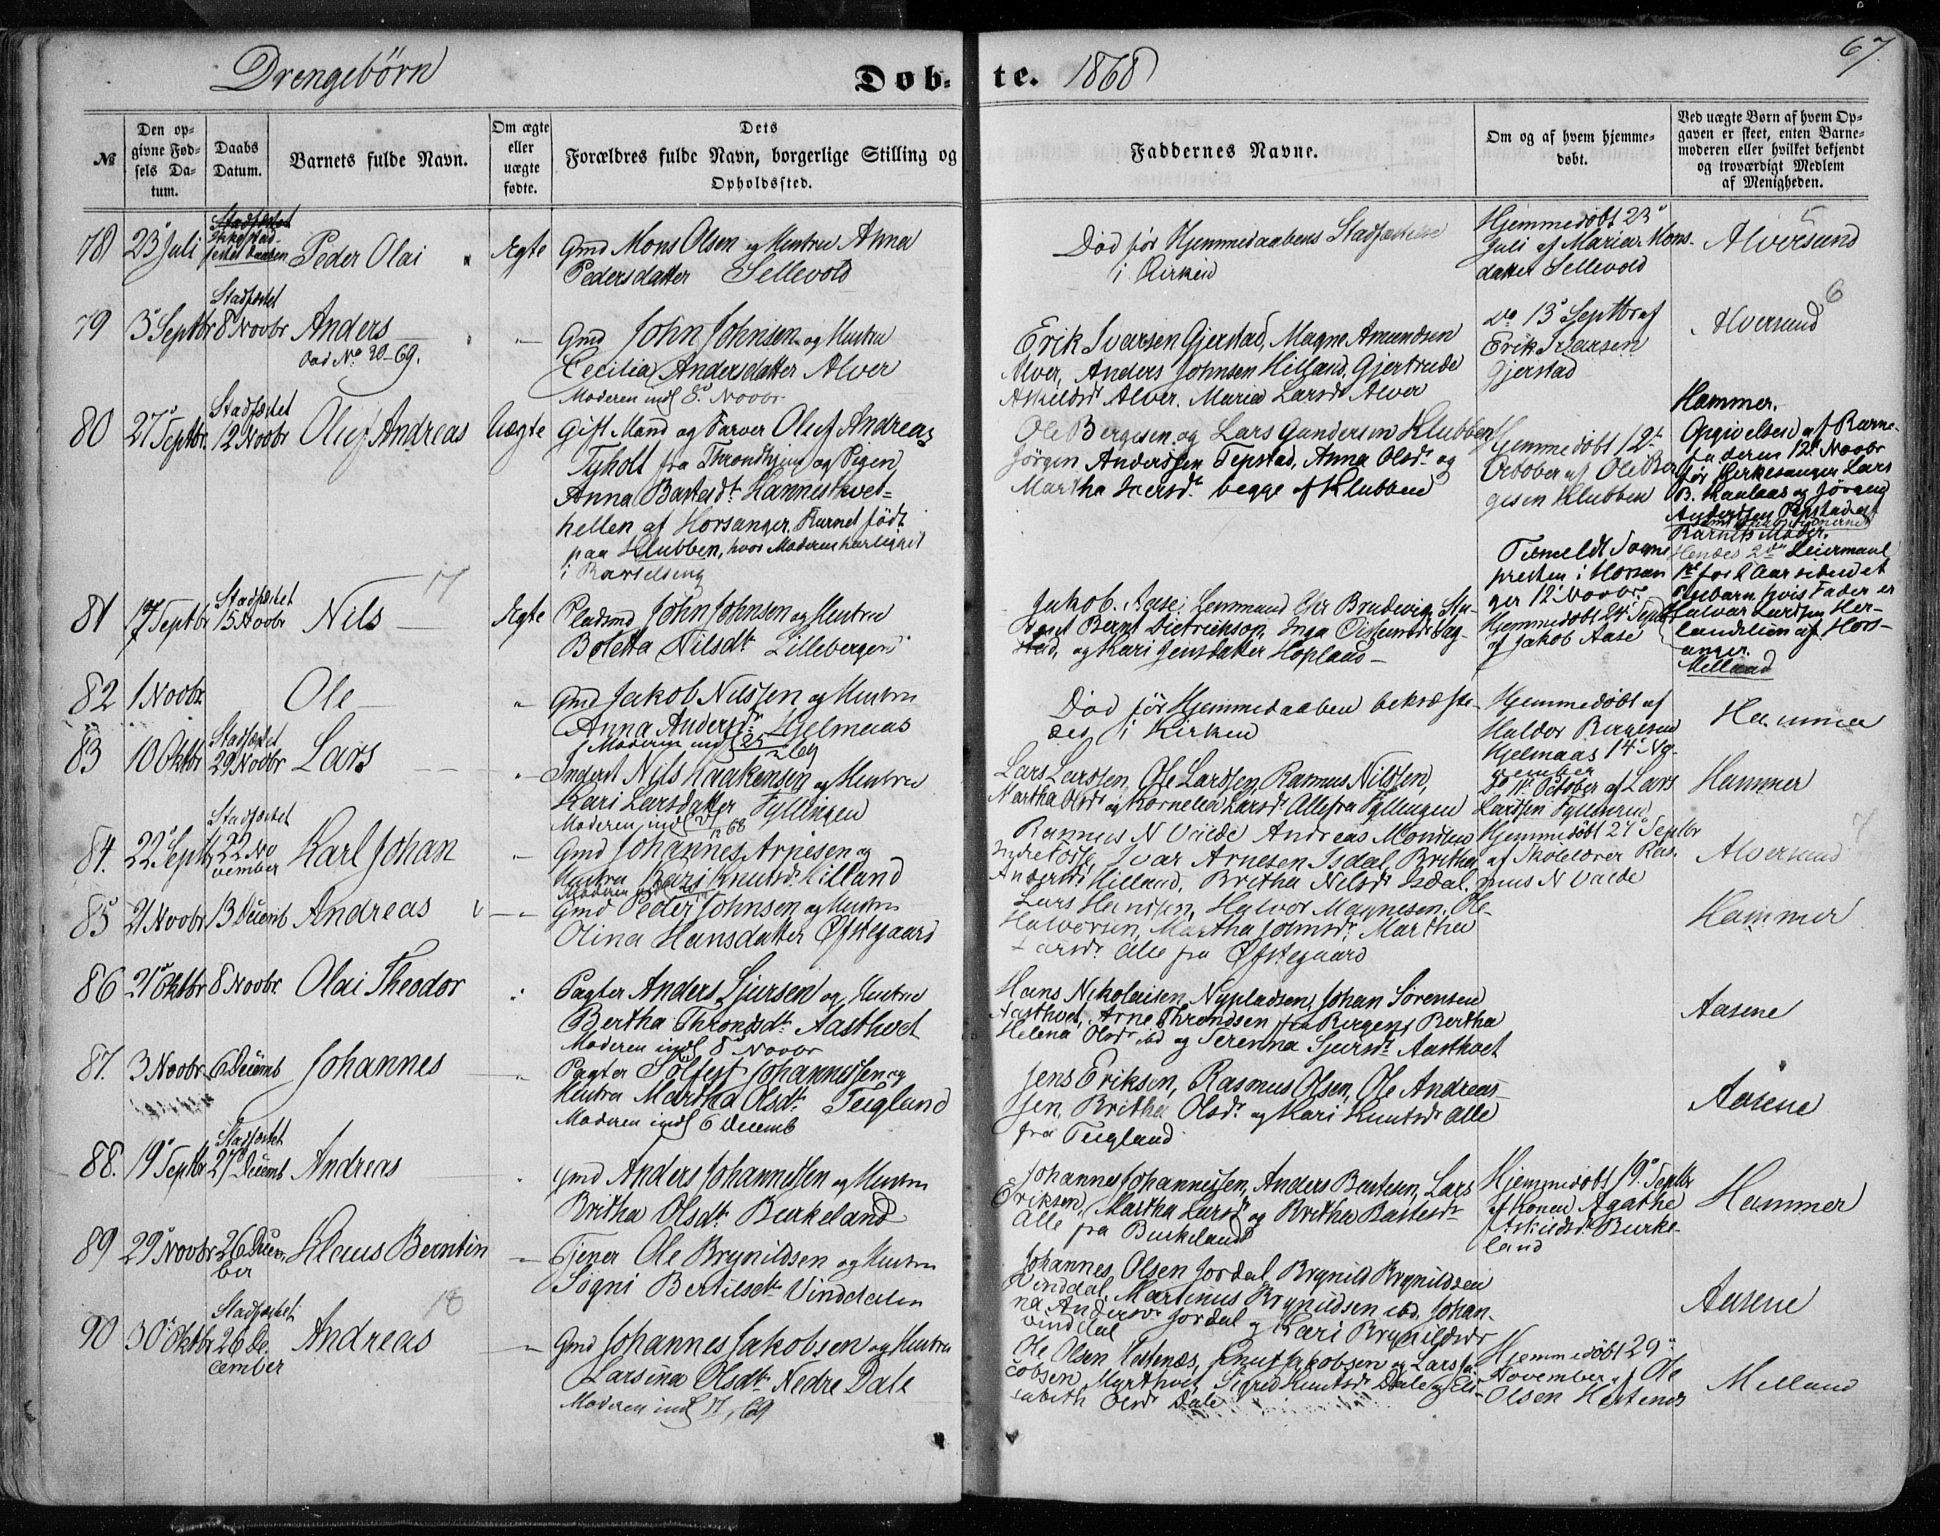 67.
Drengebørn
Døb-te. 1868
№
Den op-
givne Fød-
sels Da-
tum.
Daabs
Datum.
Barnets fulde Navn.
Om ægte
eller
uægte
fødte.
Dets
Forældres fulde Navn, borgerlige Stilling og
Opholdssted.
Faddernes Navne.
Om og af hvem hjemme-
døbt.
Ved uægte Børn af hvem Op-
gaven er skeet, enten Barne-
moderen eller hvilket bekjendt
og troværdigt Medlem
af Menigheden.
78 23 Juli
Stadfæstet
Ikke stad-
fæstet Daaben
Peder Olai
Ægte
Gmd Mons Olsen og Hustru Anna
Pedersdatter Sellevold
Død før Hjemmedaabens Stadfæstelse
i Kirken
Hjemmedøbt 23
Juli af Maria Mons-
datter Sellevold
5
Alversund
79 3 Septbr
Stadfæstet
8 Novbr
Anders
død No 20-69.
Gmd John Johnsen og Hustru
Cecilia Andersdatter Alver
Moderen indl 8 Novbr
Erik Ivarsen Gjerstad, Magne Amundsen
Alver, Anders Johnsen Hilland, Gjertrude
Askildsdr Alver. Maria Larsdr Alver
do 13 Septbr af
Erik Ivarsen
Gjerstad
6
Alversund
80 27 Septbr.
Stadfæstet
12 Novbr
Oluf Andreas
Uægte
Gift Mand og Farver Oluf Andreas
Tyholt fra Throndhjem og Pigen
Anna Bastesdt Hannisdal
hellen af Horsanger. Barnet født
paa Klubben, hvor Moderen har ligget
i Barselseng
Ole Bergesen og Lars Gundersen Klubben
Jørgen Anderssen Tepstad, Anna Olsdr og
Martha Iversdr begge af Klubben
Hjemmedøbt 12
October af Ole Ber-
gesen Klubben
Tilmeldt Sogne
presten i Horsan
ger 12 Novbr
Hammer.
Opgivelsen af Barne-
faderen 12 Novbr
før Kirkesanger Lars
B. Kanlaas og Jørgen
Anderssen Tepstad af
Barnets Moder.
Hendes 2den Leiermaal
1st for 2 Aar siden et
Pigebarn, hvis Fader er
Halvar Larssen Her-
landslien af Hors-
anger.
81 17 Septbr
Stadfæstet
15 Novbr
Nils
17
Ægte
Pladsmd John Johnsen og Hustru
Boletta Nilsdt Lillebergen
Jakob Aase, Lensmand Chr Brudevig,
Bernt Dietrichson, Inga
og Kari Jensdatter Hopland
Hjemmedøbt 24 Septbr
af Jakob Aase
Melland
82 1 Novbr.
Ole
Gmd Jakob Nilssen og Hustru
Anna Andersdr Hjelmaas
Moderen indl
69
Død før Hjemmedaaben bekræfte-
des i Kirken
Hjemmedøbt af
Haldor Bergesen
Hjelmaas 14 No-
vember
Hammer
83 10 Oktbr
Stadfæstet
29 Novbr
Lars
Inderst Nils Haakensen og Hustru
Kari Larsdatter Fyllingen
Moderen indl 68
Lars Larssen, Ole Larssen, Rasmus Nilssen,
Martha Olsdr og Kornelia Larsdr Alle fra Fyllingen
do 11 October af Lars
Larssen Fyllingen
Hammer
84. 22 Septbr
Stadfæstet
22 No
vember
Karl Johan
Gmd Johannes Arnesen og
Hustru Kari Knutsdr Hilland
Rasmus N Valde Andreas Monssen
Ivar Arnesen Isdal, Britha
Andersdr Hilland, Britha Nilsdr Isdal.
Hjemmedøbt 24 Septbr
af Skolelærer Ras-
mus N Valde
7
Alversund
85 21 Novbr 13 Decemb
Andreas
Gmd Peder Johnsen og Hustru
Olina Hansdatter Øfstegaard
Lars Hanssen, Halvor Magnesen, Ole
Halvorsen, Martha Johnsdr, Martha
Larsdr Alle fra Øfstegaard
Hammer
86 21 Oktbr 8 Novbr.
Olai Theodor
Pagter Anders Sjursen og Hustru
Bertha Thronsdt. Aastvedt
Moderen indl 8 Novbr
Hans Nikolaisen Nypladsen, Johan Sørensen
Aasthvet, Arne Throndsen fra Bergen, Bertha
Helena Olsdr ibd og Severina Sjursdr Aasthvet
Aasene
87. 3 Novbr 6 Decemb
Johannes
Pagter Sølfest Johannessen og
Hustru Martha Olsdt. Teigland
Moderen indl 6 Decemb
Jens Eriksen, Rasmus Olsen, Ole Andreas-
sen, Britha Olsdr og Kari Knutsdr alle
fra Teigland
Aasene
88. 19 Septbr
Stadfæstet
27 Decemb
Andreas
Gmd Anders Johannessen og Hustru
Britha Olsdt. Burkeland
Johannes Johannessen, Anders Bastesen, Lars
Eriksen, Martha Larsdr og Britha Bastesdr
Alle fra Burkeland
Hjemmedøbt 19 Septbr
af Konen Agathe
Askildsdr Burke-
land
Hammer
89 29 Novbr 26 Decem-
ber
Klaus Berntin
Tjener Ole Brynildsen og Hustru
Signi Bertilsdt. Vinddalen
Johannes Olsen Jordal, Brynild Brynildsen
Vinddal, Martinus Brynildsen ibd. Johan-
na Andersdr Jordal og Kari Brynildsdr
Vinddal
Aasene
90 30 Oktbr
Stadfæstet
26 De-
cember
Andreas
18
Gmd Johannes Jakobsen og Hustru
Larsina Olsdt. Nedre Dale
Moderen indl 69
Ole Olsen Hestenæs, Knut Jakobsen og Lars Ja-
cobsen Myrthvet, Sigrid Knutsdr Dale og Eli-
sabeth Olsdr Dale
Hjemmedøbt 29
November af Ole
Olsen Hestenes
Melland